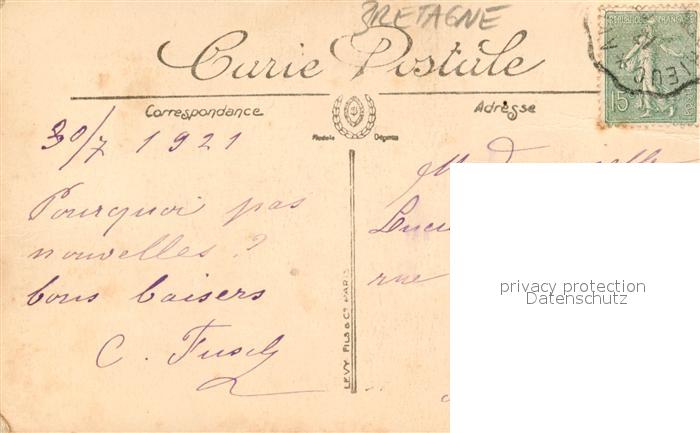 BRETAGNE
REPUBLIQUE FRANCAISE
15
Carte Postale
Correspondance
Adresse
Modèle Déposé
30/7 1921
Pourquoi pas
nouvelles ?
bons baisers
C.
rue
LEVY FILS & Cie PARIS
privacy protection
Datenschutz